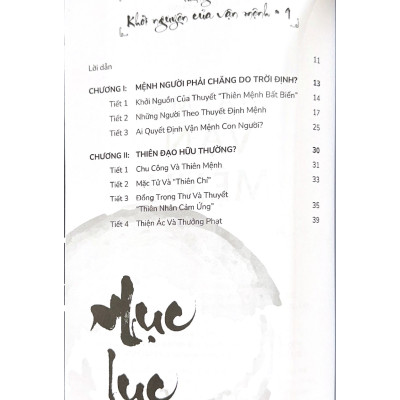 Khởi nguyên của vận mệnh • 1
Lời dẫn 11
CHƯƠNG I: MỆNH NGƯỜI PHẢI CHĂNG DO TRỜI ĐỊNH? 13
Tiết 1 Khởi Nguồn Của Thuyết "Thiên Mệnh Bất Biến" 14
Tiết 2 Những Người Theo Thuyết Định Mệnh 17
Tiết 3 Ai Quyết Định Vận Mệnh Con Người? 25
CHƯƠNG II: THIÊN ĐẠO HỮU THƯỜNG? 30
Tiết 1 Chu Công Và Thiên Mệnh 31
Tiết 2 Mặc Tử Và "Thiên Chí" 33
Tiết 3 Đổng Trọng Thư Và Thuyết
"Thiên Nhân Cảm Ứng" 35
Tiết 4 Thiện Ác Và Thưởng Phạt 39
Mục
lục